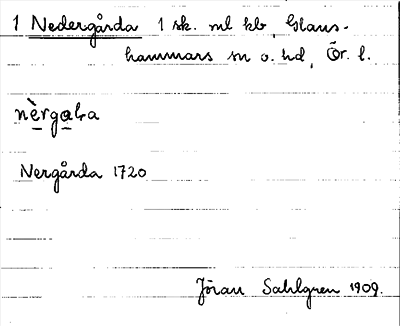 1 Nedergårda 1 sk. ml kb, Glans-
hammars sn o. hd, Ör. l.
Nergårda 1720
Jöran Sahlgren 1909.